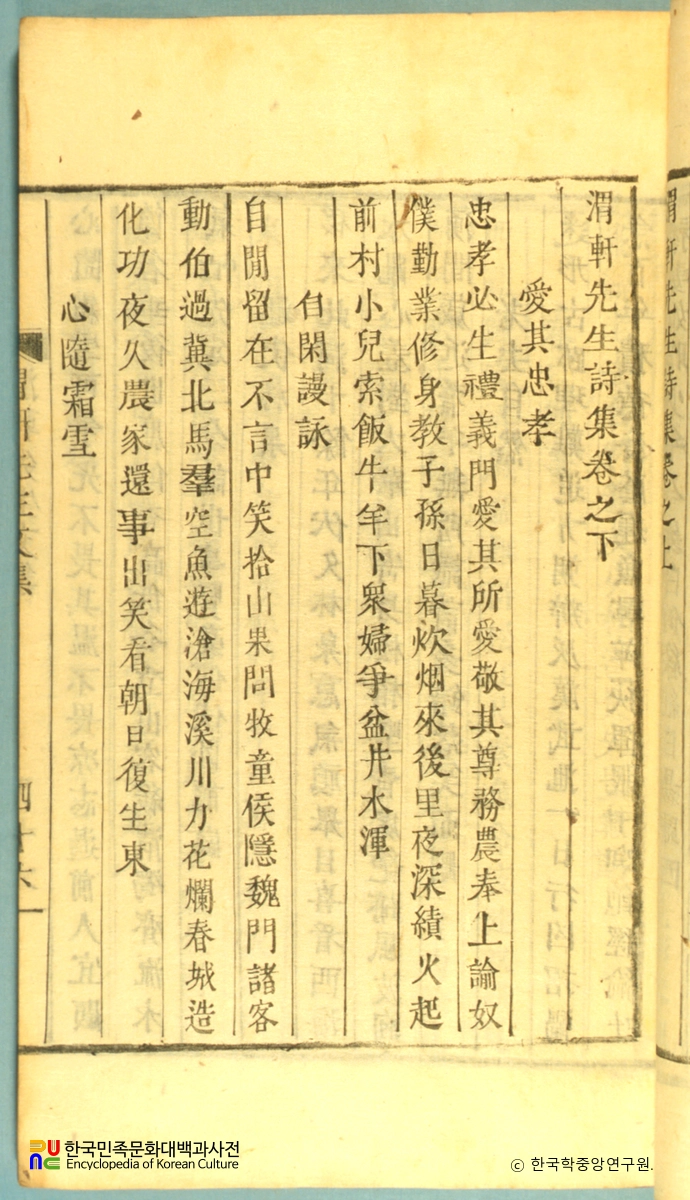 渭軒先生詩集卷之上
渭軒先生詩集卷之下
愛其忠孝
忠孝必生禮義門愛其所愛敬其尊務農奉上諭奴
僕勤業修身教子孫日暮炊烟來後里夜深績火起
前村小兒索飯牛羊下衆婦爭盆井水渾
自閑謾詠
自閒留在不言中笑拾山果問牧童侯隱魏門諸客
動伯過冀北馬羣空魚遊滄海溪川力花爛春城造
化功夜久農家還事出笑看朝日復生東
心隨霜雪
渭軒先生文集
四十六
한국민족문화대백과사전
Encyclopedia of Korean Culture
ⓒ 한국학중앙연구원.